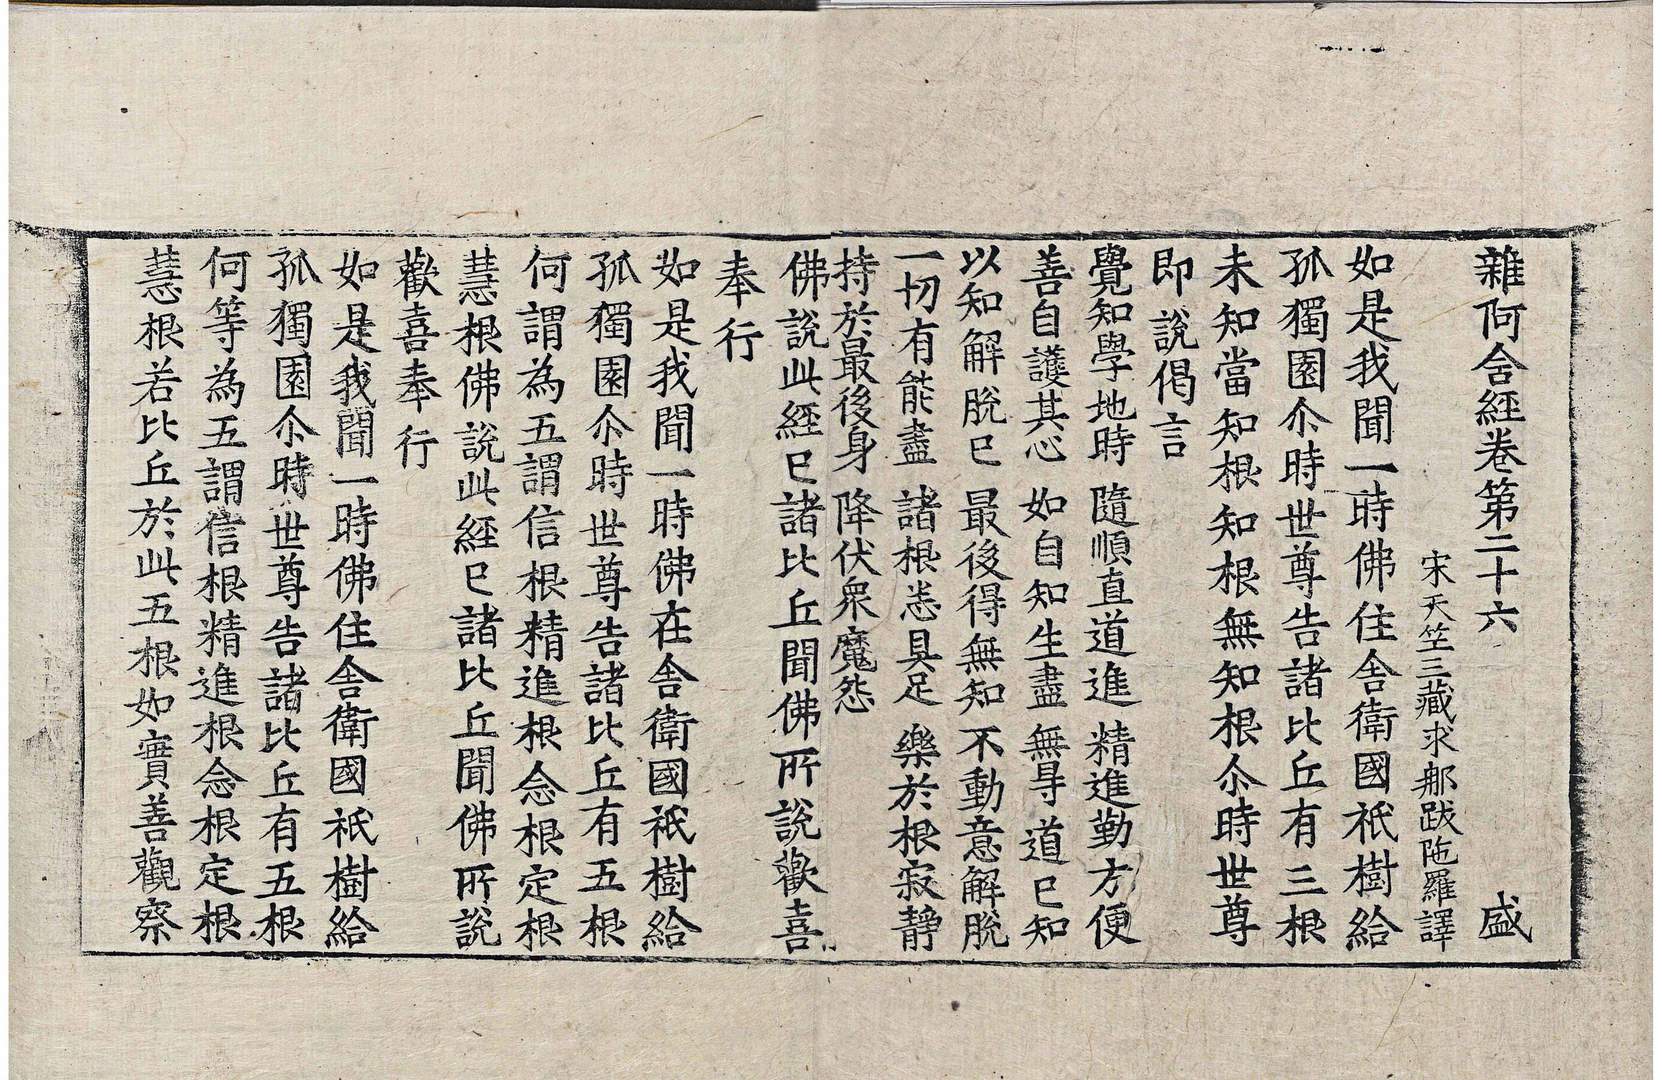 雜阿含經卷第二十六 盛
宋天竺三藏求那跋陁羅譯
如是我聞一時佛住舍衛國祇樹給
孤獨園尒時世尊告諸比丘有三根
未知當知根知根無知根尒時世尊
即說偈言
覺知學地時 隨順直道進 精進勤方便
善自護其心 如自知生盡 無㝵道已知
以知解脫已 最後得無知 不動意解脫
一切有能盡 諸根悉具足 樂於根寂靜
持於最後身 降伏衆魔怨
佛說此經已諸比丘聞佛所說歡喜
奉行
如是我聞一時佛在舍衛國祇樹給
孤獨園尒時世尊告諸比丘有五根
何謂為五謂信根精進根念根定根
慧根佛說此經已諸比丘聞佛所說
歡喜奉行
如是我聞一時佛住舍衛國祇樹給
孤獨園尒時世尊告諸比丘有五根
何等為五謂信根精進根念根定根
慧根若比丘於此五根如實善觀察